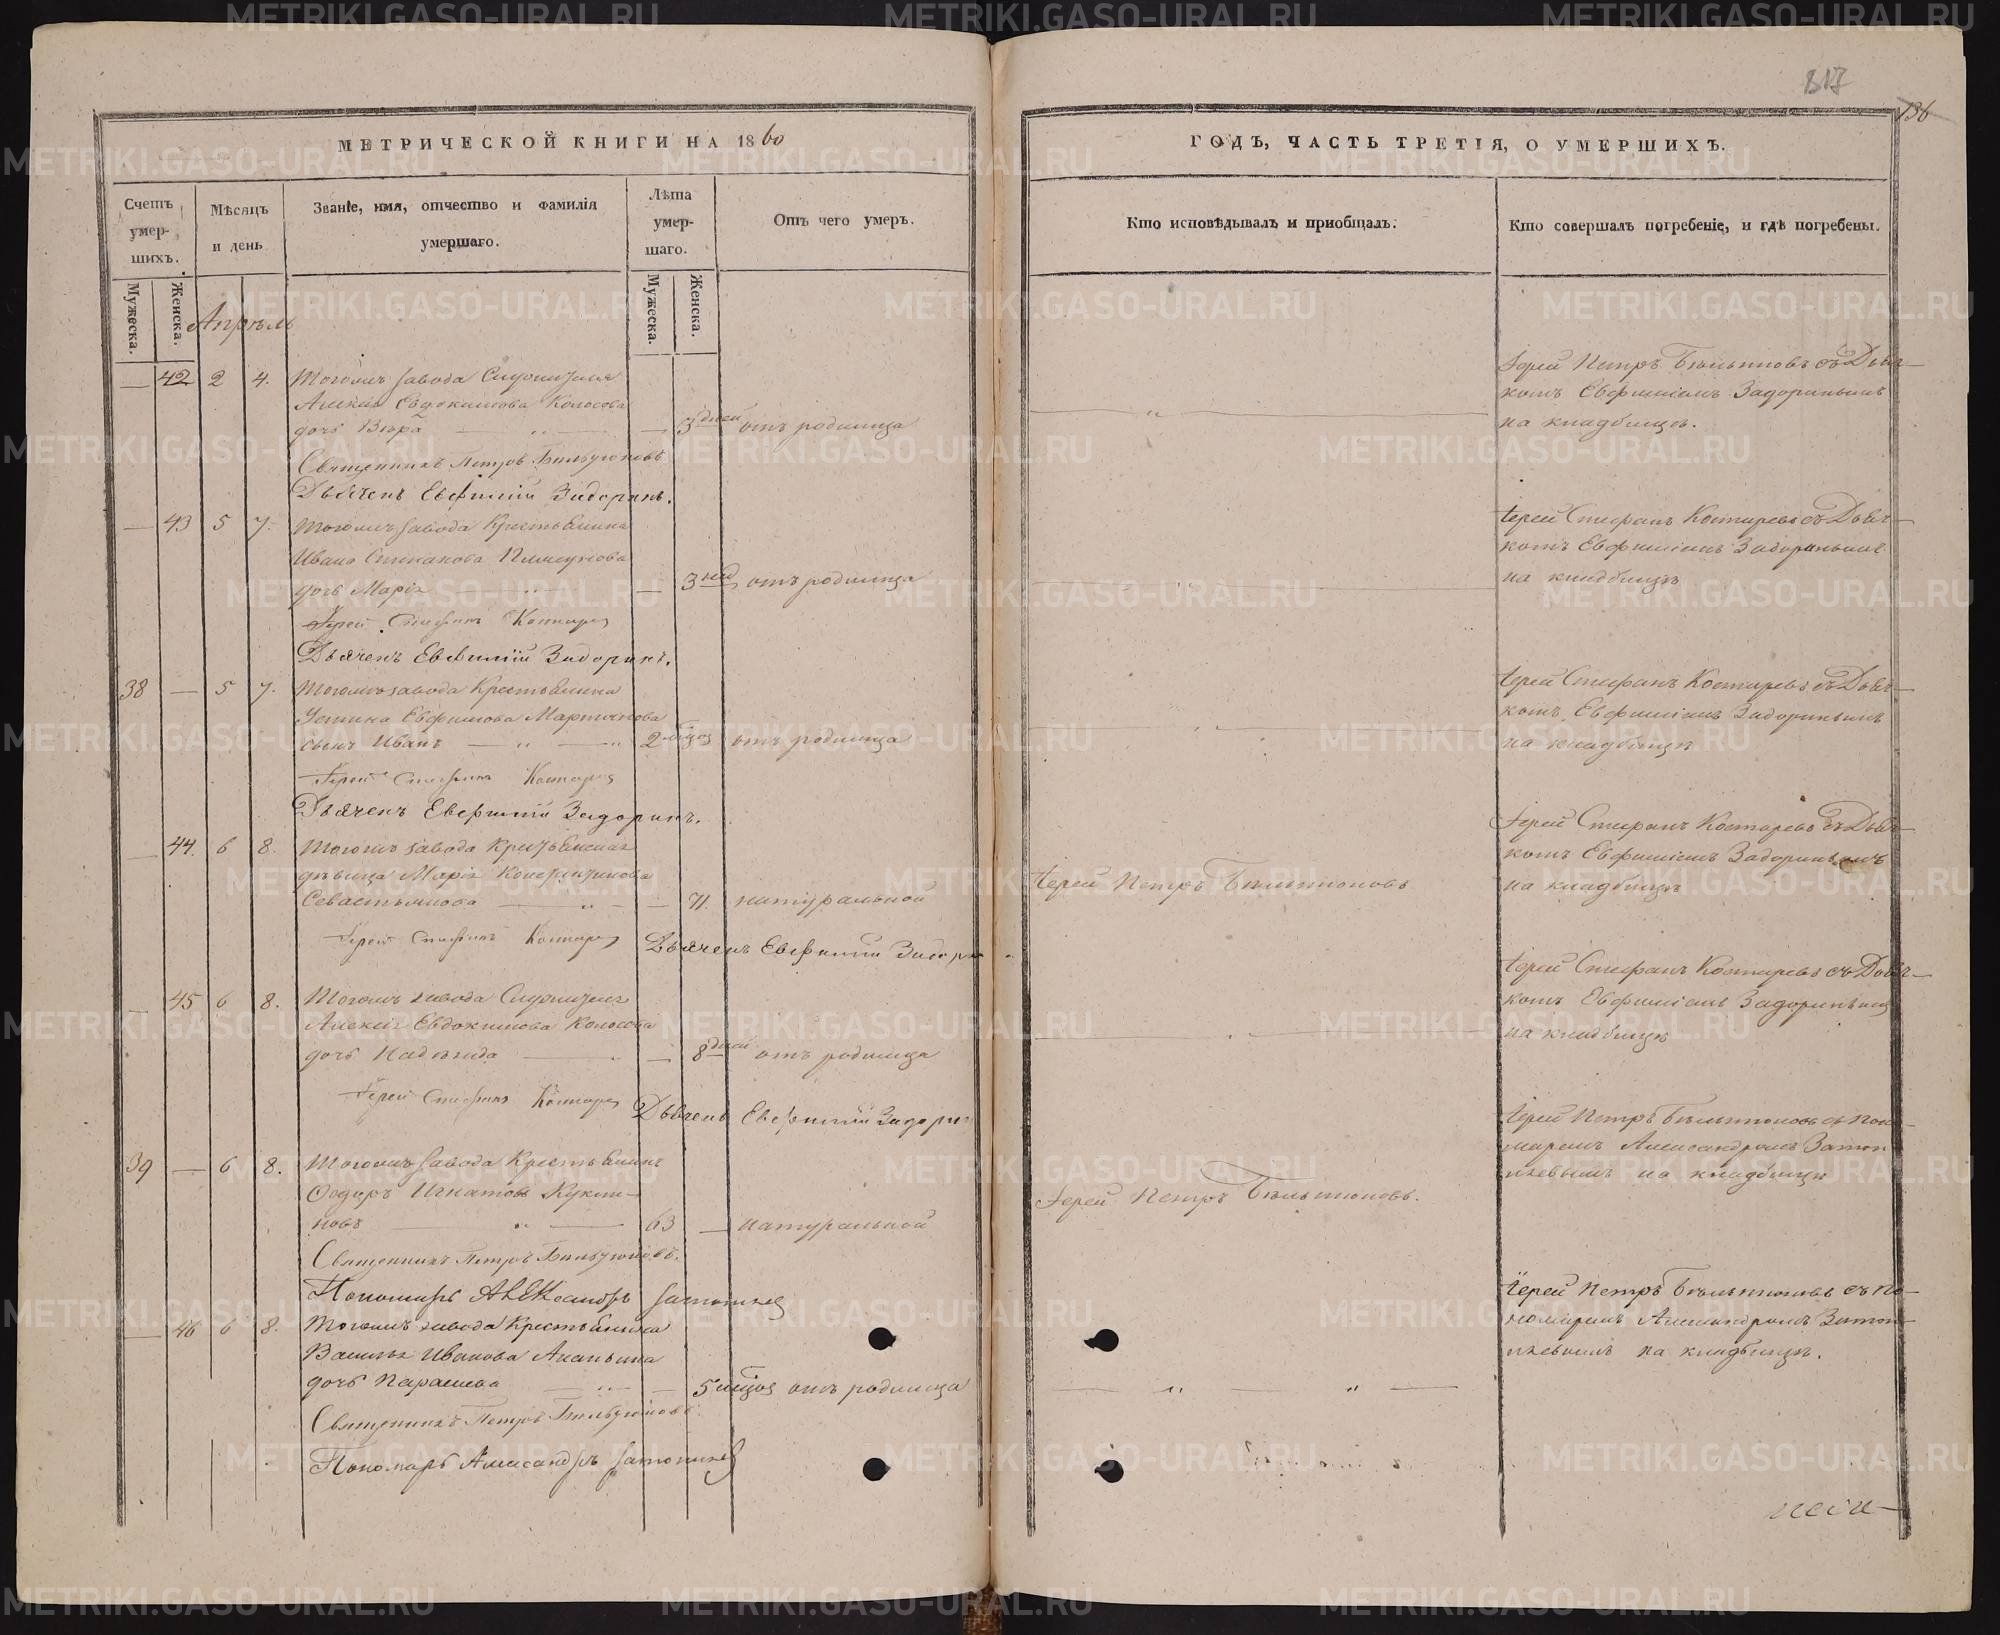 317
136
МЕТРИЧЕСКОЙ КНИГИ НА 1860
ГОДЪ, ЧАСТЬ ТРЕТІЯ, О УМЕРШИХЪ.
Счетъ умер-шихъ.
Мѣсяцъ и день
Званіе, имя, отчество и фамилія умершаго.
Лѣта умер-шаго.
Отъ чего умеръ.
Кто исповѣдывалъ и приобщалъ.
Кто совершалъ погребеніе, и гдѣ погребены.
Мужеска.
Женска.
Мужеска.
Женска.
Апрѣль
42 2 4. Тогожъ завода Служителя
Алексія Евдокимова Колосова
дочь Вѣра 3 дней отъ родимца
Іерей Петръ Бѣльтюковъ съ Дьяч-
комъ Евфиміемъ Задоринымъ
на кладбищѣ.
Священникъ Петръ Бѣльтюковъ
Дьячекъ Евфимій Задоринъ.
43 5 7. Тогожъ завода Крестьянина
Ивана Степанова
дочь Марія 3 нед отъ родимца
Іерей Стефанъ Костаревъ съ Дьяч-
комъ Евфиміемъ Задоринымъ
на кладбищѣ
Іерей Стефанъ Костарев
Дьячекъ Евфимій Задоринъ.
38 5 7. Тогожъ завода Крестьянина
Устина Евфимова Мартынова
сынъ Иванъ 2 мѣсяц отъ родимца
Іерей Стефанъ Костаревъ съ Дьяч-
комъ Евфиміемъ Задоринымъ
на кладбищѣ
Іерей Стефанъ Костарев
Дьячекъ Евфимій Задоринъ.
44. 6 8. Тогожъ завода Крестьянская
дѣвица Марія Константинова
Севастьянова 71. натуральной
Іерей Петръ Бѣльтюковъ
Іерей Стефанъ Костаревъ съ Дьяч-
комъ Евфиміемъ Задоринымъ
на кладбищѣ
Іерей Стефанъ Костарев Дьячекъ Евфимий Задорин
45 6 8. Тогожъ завода Служителя
Алексія Евдокимова Колосова
дочь Надежда 8 дней отъ родимца
Іерей Стефанъ Костаревъ съ Дьяч-
комъ Евфиміемъ Задоринымъ
на кладбищѣ
Іерей Стефанъ Костарев Дьячекъ Евфимій Задорин
39 6 8. Тогожъ завода Крестьянинъ
Ѳедоръ Игнатовъ
новъ 63 натуральной
Іерей Петръ Бѣльтюковъ.
Іерей Петръ Бѣльтюковъ съ Поно-
маремъ Александромъ Затоп
ляевымъ на кладбищѣ
Священникъ Петръ Бѣльтюковъ.
Пономарь Александръ
46 6 8. Тогожъ завода Крестьянина
Василья Иванова Ананьина
дочь Параскева 5 мѣсяц отъ родимца
Іерей Петръ Бѣльтюковъ съ По-
номаремъ Александромъ Затоп-
ляевымъ на кладбищѣ.
Священникъ Петръ Бѣльтюковъ
Пономарь Александръ
METRIKI.GASO-URAL.RU